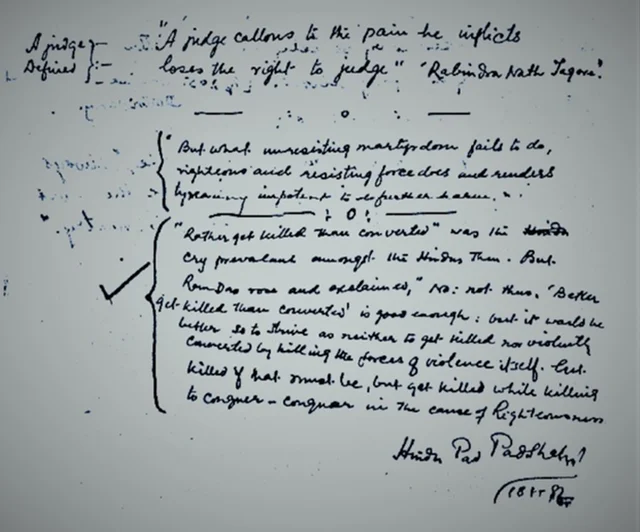 A judge :-
Defined :-
"A judge callous to the pain he inflicts
loses the right to judge" "Rabindra Nath Tagore".
"But what unresisting martyrdom fails to do,
righteous and resisting force does and renders
tyranny impotent to do further harm."
"Rather get killed than converted" was the
cry prevalent amongst the Hindus then. But
Ram Das rose and exclaimed, "No: not thus. 'Better
get killed than converted' is good enough: but it would be
better so to strive as neither to get killed nor violently
converted by killing the forces of violence itself. Get
killed if that must be, but get killed while killing
to conquer - conquer in the cause of Righteousness
Hindu Pad Padshahi